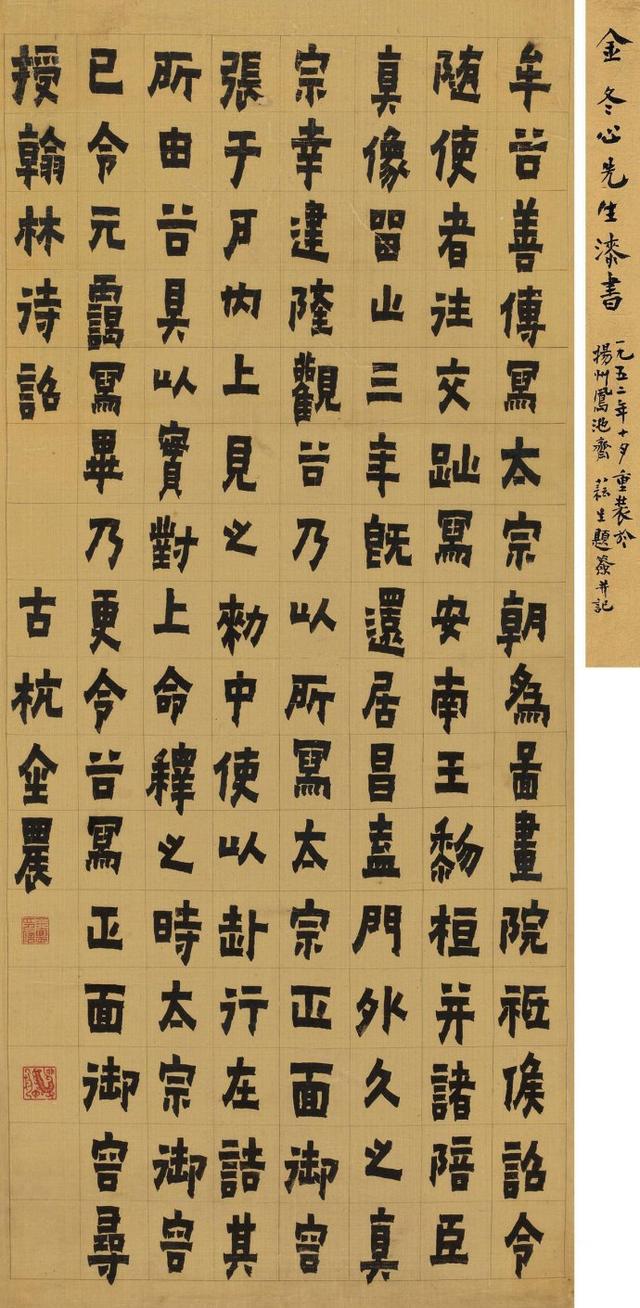 金冬心先生漆書
一九五二年十月重裝於
揚州鳳池齋 題簽并記
牟谷善傳寫太宗朝為啚畫院祗候詔令
随使者往交趾寫安南王黎桓并諸陪臣
真像留止三年既還居昌盍門外久之真
宗幸建隆觀谷乃以所寫太宗正面御容
張于戶內上見之勑中使以赴行在詰其
所由谷具以實對上命釋之時太宗御容
已令元靄寫畢乃更令谷寫正面御容尋
授翰林待詔 古杭金農